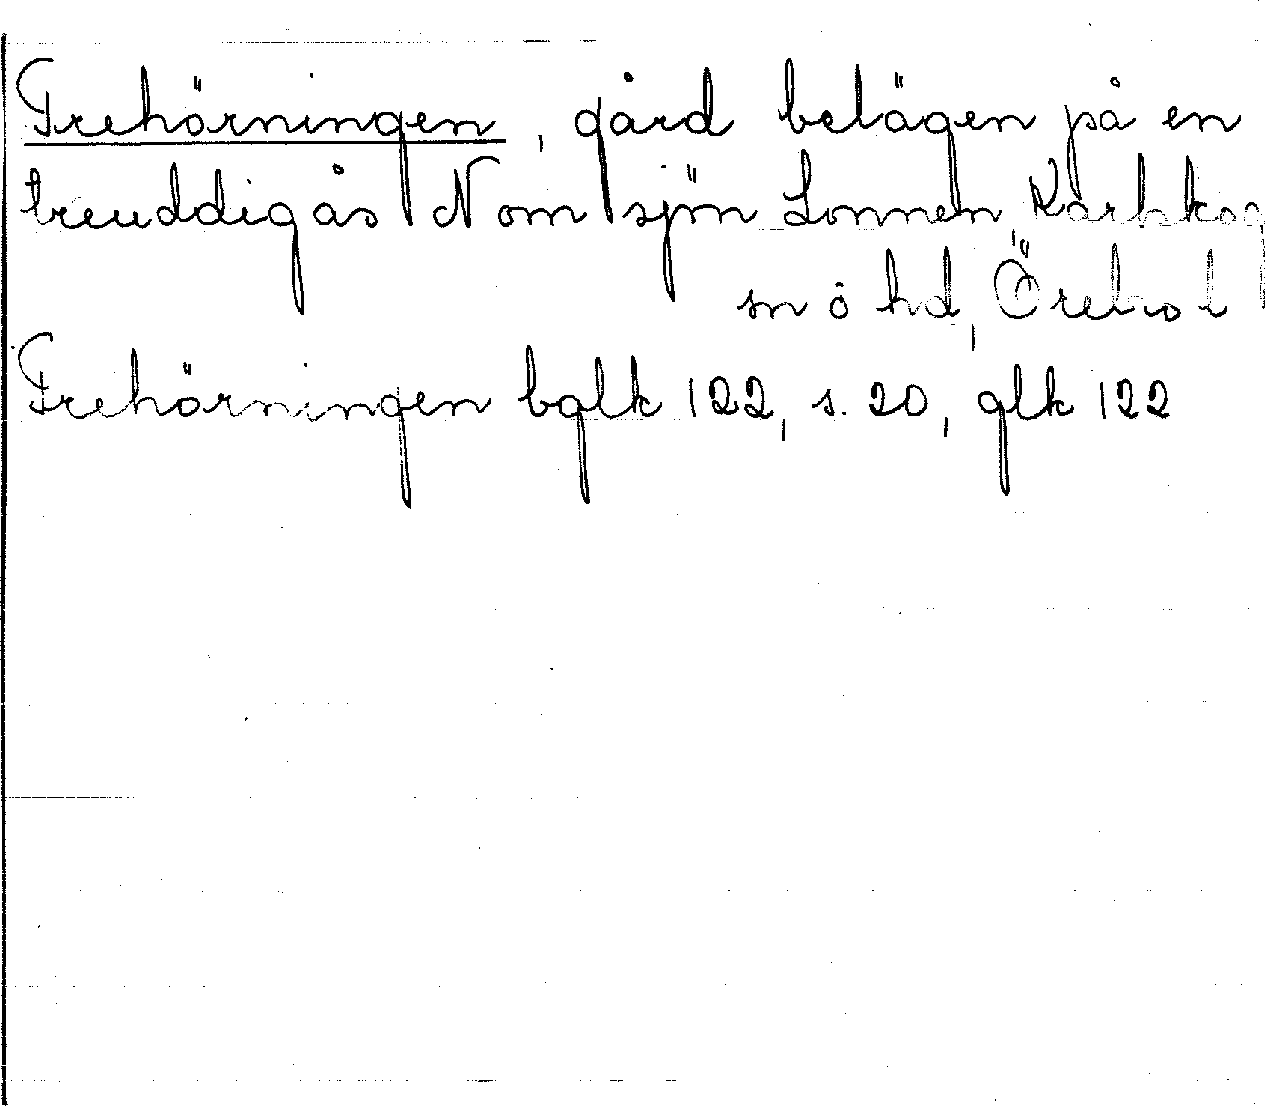 Trehörningen, gård belägen på en
treuddig ås N om sjön Lonnen, Karlskog
sn o hd, Örebro l
Trehörningen bglk 122, s. 20, glk 122